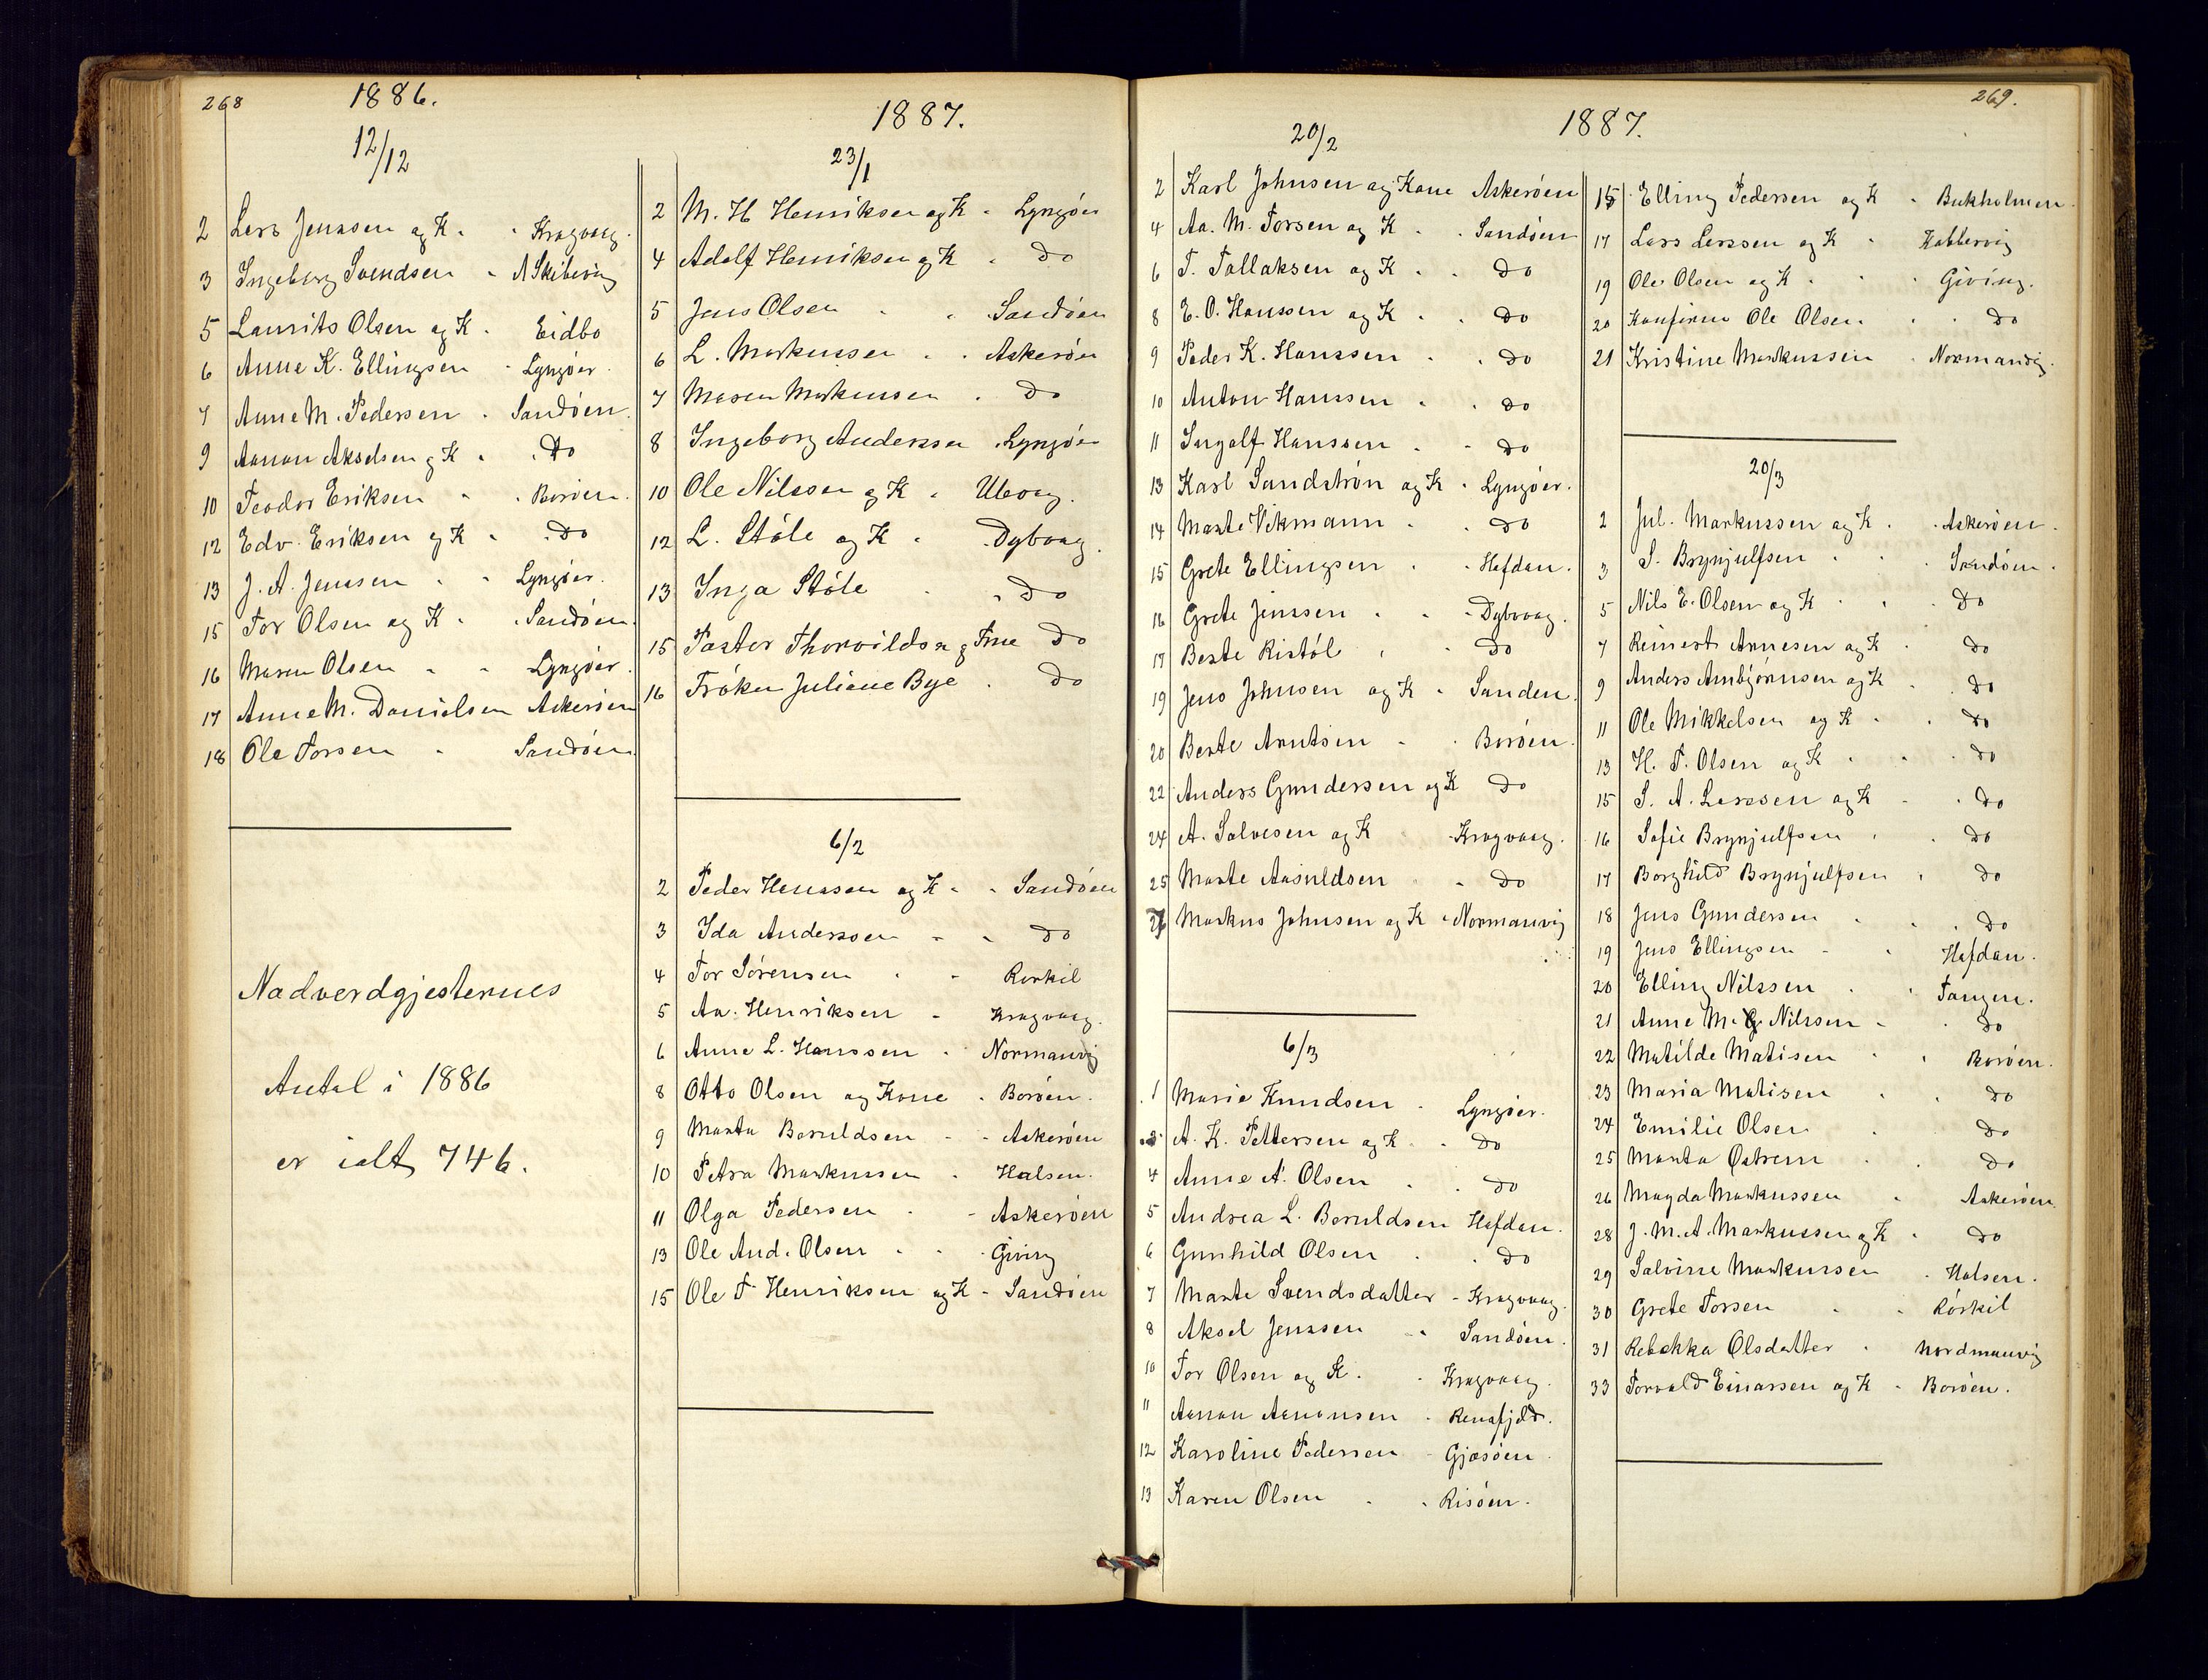 268
1886.
12/12
2 Lars Jenssen og K. Kragvaag.
3 Ingeborg Svendsen A Skibevig
5 Laurits Olsen og K. Eidbo
6 Anne K. Ellingsen Lyngøer.
7 Anne M. Pedersen Sandøen.
9 Aanon Akselsen og K Do
10 Teodor Eriksen Borøen.
12 Edv. Eriksen og K Do
13 J. A. Jenssen Lyngøer.
15 Tor Olsen og K. Sandøen.
16 Maren Olsen Lyngøer.
17 Anne M. Danielsen Askerøen
18 Ole Torsen Sandøen
Nadverdgjesternes
Antal i 1886
er ialt 746.
1887.
23/1
2 M. H Henriksen og K. Lyngøer
4 Adolf Henriksen og K Do
5 Jens Olsen Sandøen
6 L. Markussen Askerøen
7 Maren Markussen Do
8 Ingeborg Anderssen Lyngøer
10 Ole Nilssen og K Uborg.
12 L. Støle og K Dybvaag.
13 Inga Støle Do
15 Pastor Thorvildsen og Frue Do
16 Frøken Juliane Bye Do
6/2
2 Peder Henssen og K Sandøen
3 Ida Anderssen Do
4 Tor Sørensen Rørkil
5 Aa. Henriksen Kragvaag.
6 Anne L. Hanssen Normanvig
8 Otto Olsen og Kone Borøen.
9 Marta Beruldsen Askerøen
10 Petra Markussen Halsen.
11 Olga Pedersen Askerøen
13 Ole And. Olsen Giving
15 Ole T Henriksen og K Sandøen
269.
1887.
20/2
2 Karl Johnsen og Kone Askerøen
4 Aa. M. Torsen og K Sandøen
6 T. Tallaksen og K Do
8 E. O. Hanssen og K Do
9 Peder K. Hanssen Do
10 Anton Hanssen Do
11 Ingolf Hanssen Do
13 Karl Sandstrøn og K Lyngøer.
14 Marte Vikmann Do
15 Grete Ellingsen Hafdan.
16 Grete Jenssen Dybvaag.
17 Berte Ristøl Do
19 Jens Johnsen og K Sanden.
20 Berte Arntsen Borøen.
22 Anders Gundersen og K Do
24 A. Salvesen og K Kragvaag.
25 Marte Aasuldsen Do
27 Markus Johnsen og K Normanvig
6/3
1 Marie Knudsen Lyngøer.
3 A. K. Pettersen og K Do
4 Anne A. Olsen Do
5 Andrea L. Beruldsen Hafdan.
6 Gunhild Olsen Do
7 Marte Svendsdatter Kragvaag.
8 Aksel Jenssen Sandøen.
10 Tor Olsen og K. Kragvaag.
11 Aanon Aanonsen Renafjeld.
12 Karoline Pedersen Gjæsøen
13 Karen Olsen Risøen.
15 Elling Pedersen og K Bukholmen.
17 Lars Lerssen og K Kabbervig
19 Ole Olsen og K Giving.
20 Konfirm Ole Olsen. Do
21 Kristine Markussen Normanvig.
20/3
2 Jul. Markussen og K. Askerøen.
3 S. Brynjulfsen Sandøen.
5 Nils E. Olsen og K Do
7 Reinert Arnesen og K Do
9 Anders Ambjørnsen og K Do
11 Ole Mikkelsen og K Do
13 H. T. Olsen og K Do
15 S. A. Larssen og K Do
16 Sofie Brynjulfsen Do
17 Borghild Brynjulfsen Do
18 Jens Gundersen Do
19 Jens Ellingsen Hafdan.
20 Elling Nilssen Tangen.
21 Anne M. G Nilssen Do
22 Matilde Matisen Borøen.
23 Maria Matisen Do
24 Emilie Olsen Do
25 Marta Østrem Do
26 Magda Markussen Askerøen
28 J. M. A. Markussen og K Do
29 Salvine Markussen Halsen.
30 Grete Torsen Rørkil
31 Rebekka Olsdatter Nordmanvig
33 Torvald Einarsen og K Borøen.